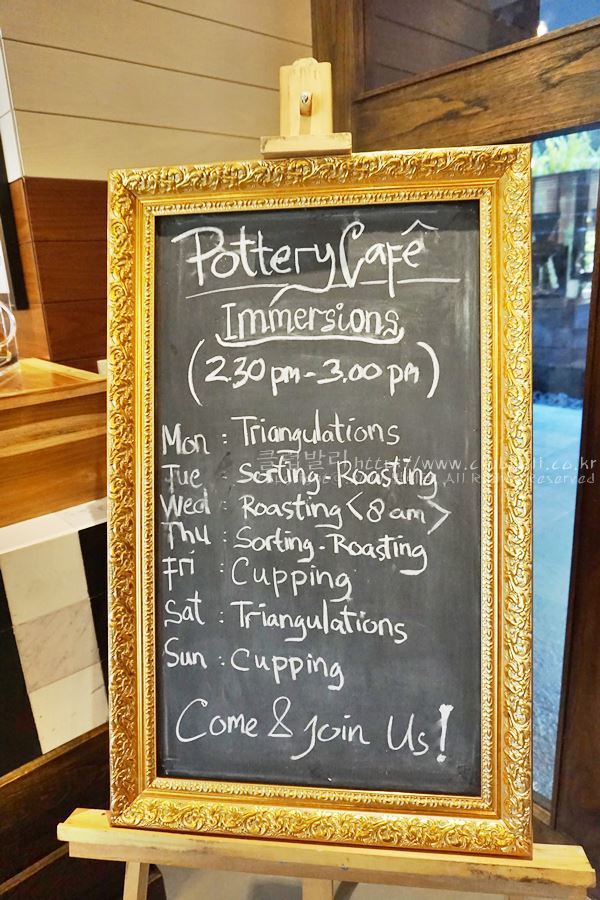 Pottery Cafê
Immersions
(2.30 pm - 3.00 pm)
Mon : Triangulations
Tue : Sorting. Roasting
Wed : Roasting <8 am>
Thu : Sorting. Roasting
Fri : Cupping
Sat : Triangulations
Sun : Cupping
Come & Join Us!
클럽발리 http://www.clubbali.co.kr
All Rights Reserved